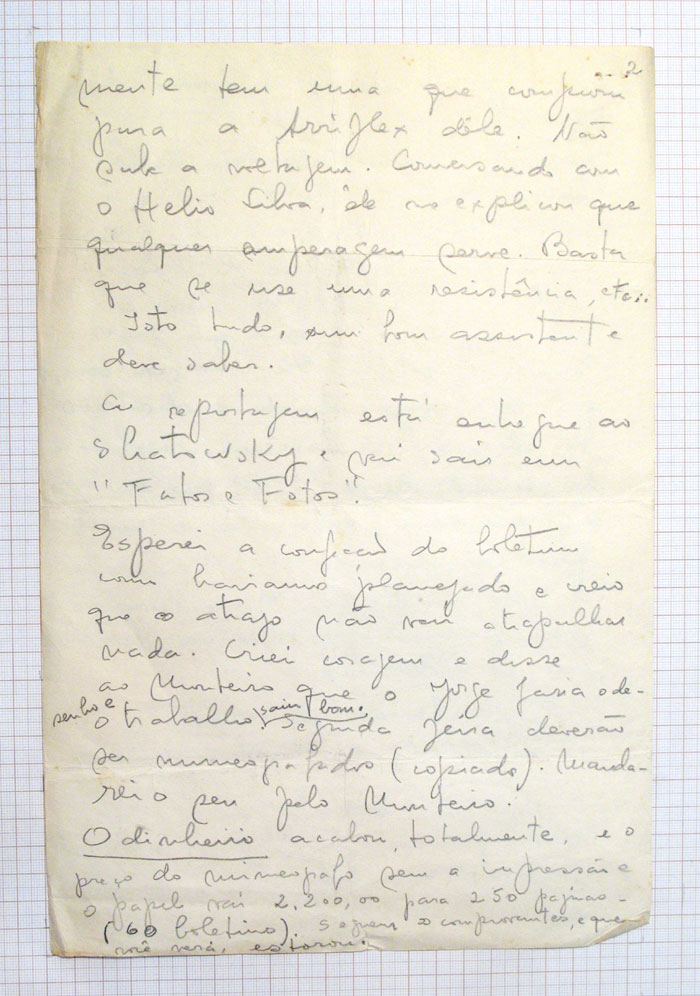 2
mente tem uma que compram
para a Arriflex dêle. Não
sube a voltagem. Conversando com
o Helio Silva, êle me explicou que
qualquer amperagem serve. Basta
que se use uma resistência, etc..
Isto tudo, um bom assistente
deve saber.
A reportagem está entregue ao
Shatowsky e vai sair em
"Fatos e Fotos".
Esperei a confecção do boletim
com haviamos planejado e creio
que o atrazo não vai atrapalhar
nada. Criei coragem e disse
ao Monteiro que o Jorge faria o de-
senho e o trabalho sairá bom. Segunda feira deverão
ser mimeografados (copiado). Manda-
rei o seu pelo Monteiro.
O dinheiro acabou, totalmente, e o
preço do mimeografo sem a impressão e
o papel vai 2.200,00 para 250 paginas -
(60 boletins). Seguem os comprovantes, e que
você verá, estorou.